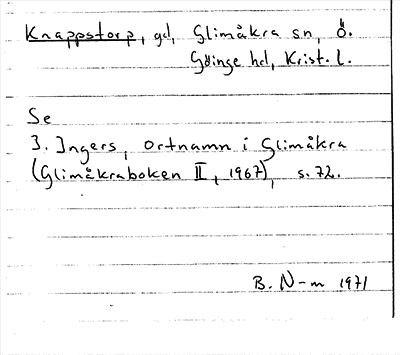 Knappstorp, gd, Glimåkra sn, Ö.
Göinge hd, Krist. l.
Se
I. Ingers, Ortnamn i Glimåkra
(Glimåkraboken II, 1967), s. 72.
B. N-m 1971